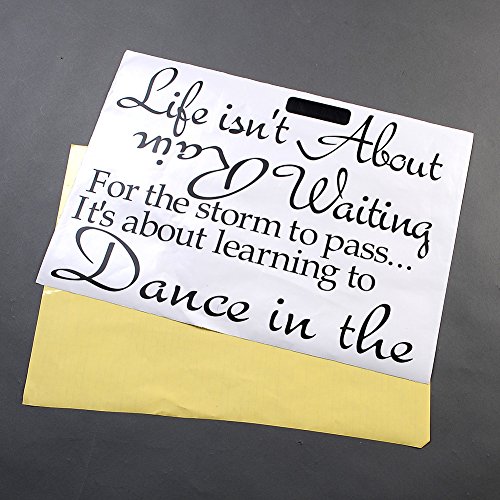 Life isn't About
Rain
Waiting
For the storm to pass...
It's about learning to
Dance in the